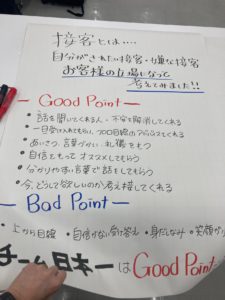 接客とは‥‥
自分がされたい接客・嫌な接客
お客様の立場になって
考えてみました!!
— Good Point —
• 話を聞いてくれる人・不安を解消してくれる
• プロ目線のアドバイスをくれる
• あいさつ、言葉づかい、礼儀をもつ
• 自信をもってオススメしてもらう
• 分かりやすい言葉で話をしてもらう
• 今、どうして欲しいのか考え接してくれる
— Bad Point —
• 上から目線 • 自信がない受け答え • 身だしなみ • 笑顔が
チーム日本一はGood Point